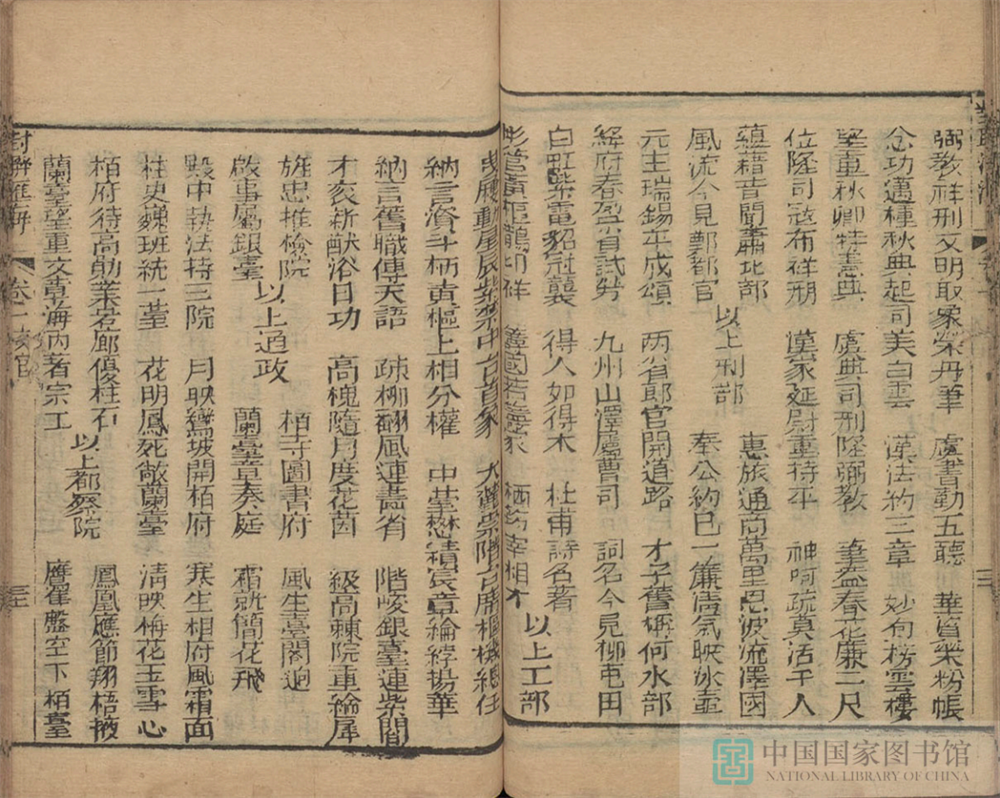 弼教祥刑文明取象榮丹筆　虞書勤五聽　華省樂粉帳
念功邁種秋典起司美白雲　漢法約三章　妙句榜雲樓
望重秋卿特憲典　虞典司刑隆弼教　筆益春花廉二尺
位隆司寇布祥刑　漢家延尉重持平　神呵疏真活千人
蘊藉昔聞蕭北部　以上刑部　惠旅通商萬里恩波流澤國
風流今見鄭都官　奉公約己一廉倩氣映氷壺
元圭瑞錫平成頌　兩省郎官開道路　才子舊稱何水部
府春盈省試勞　九州山澤屬曹司　詞名今見柳屯田
白虹紫電貂冠襲　得人如得木　杜甫詩名著
彤管黃樞鵲印祥　宰相才　以上工部
履動星辰紫禁中台　樞機總任
納言濟斗柄黃樞上相分權　中基懋績宸章綸綍揚華
納言舊職傳天語　疎柳翻風連畫省　階峻銀臺連紫闥
才亥新猷浴日功　高槐隨月度花茵　級高棘院重綸犀
旌忠推檢院　以上通政　栢寺圖書府　風生臺閣迥
啟事屬銀臺　蘭臺章奏庭　霜就簡花飛
殿中執法持三院　月映鸞坡開栢府　寒生相府風霜面
柱史巍班統一臺　花明鳳苑敞蘭臺　清映梅花玉雪心
栢府待高勛業岩廊優柱石　以上都察院　鳳凰應節翔梧掖
蘭臺望重文章海內著宗工　鷹隼盤空下栢臺
對聯匯海　卷一　文官